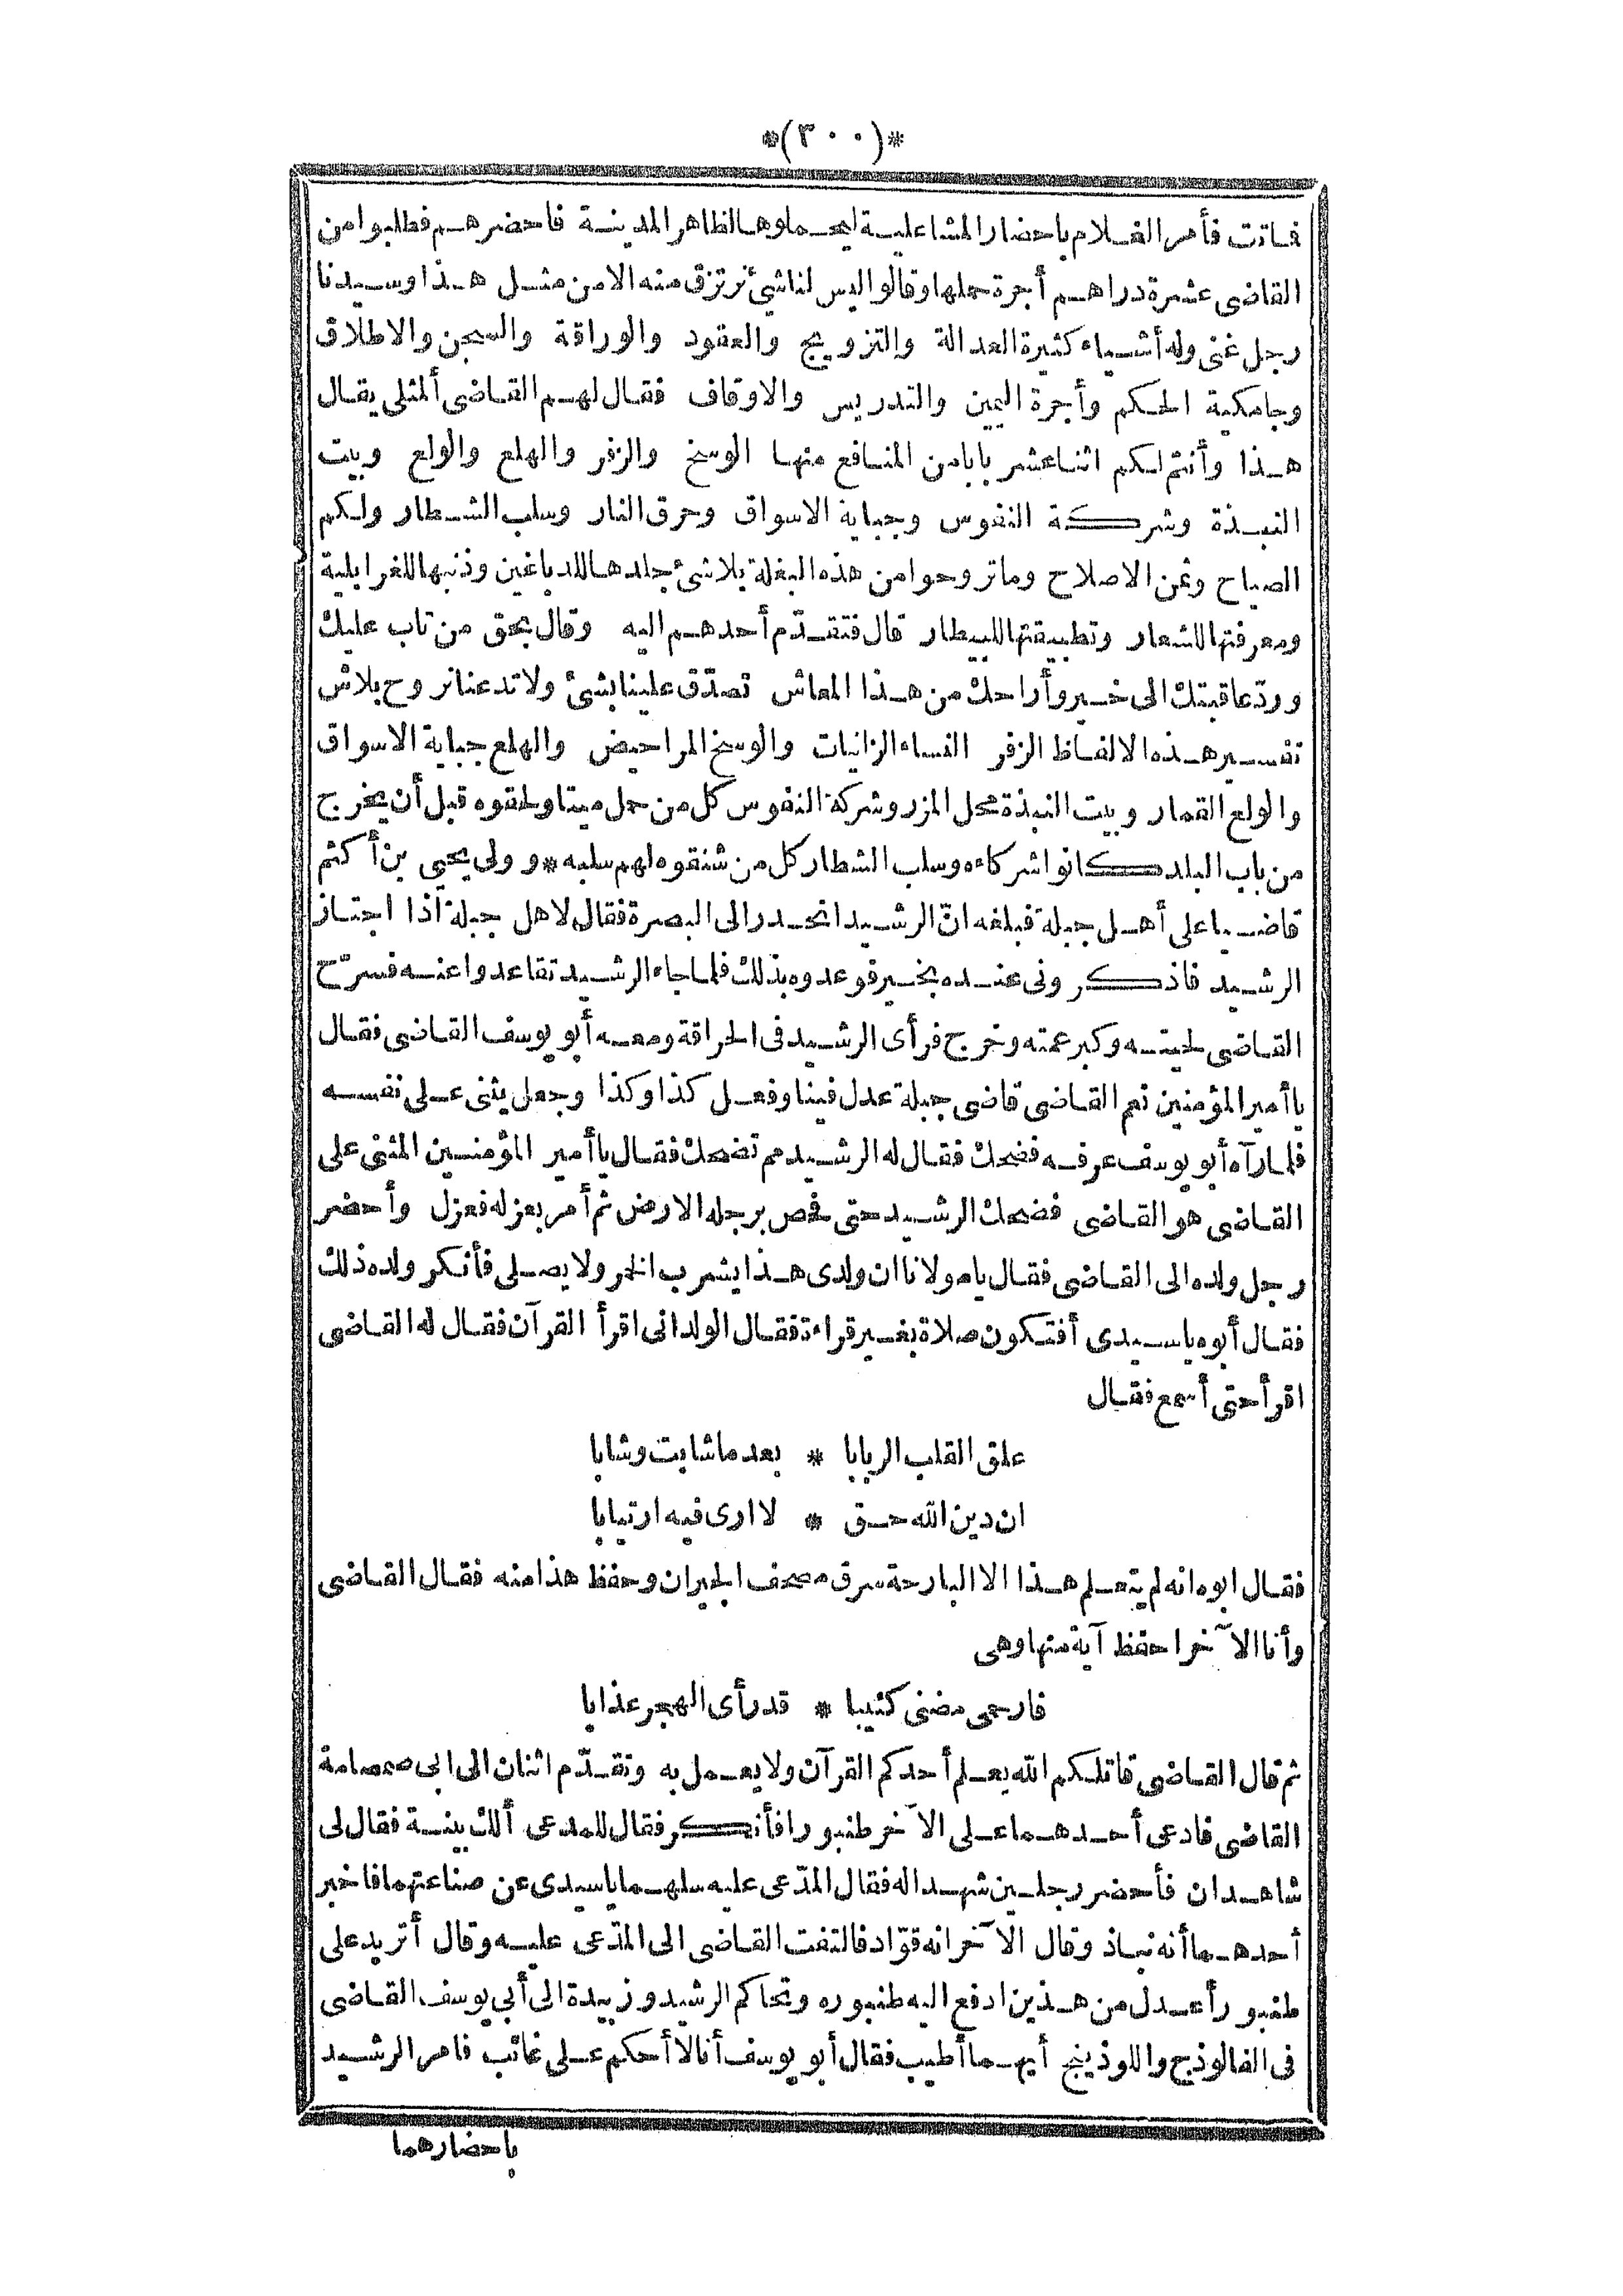 *(٣٠٠)*
فماتت فأمر الغلام باحضار المشاعلية ليحملوها لظاهر المدينة فاحضرهم فطلبوا من
القاضى عشرة دراهم أجرة حملها وقالوا ليس لنا شئ نرتزق منه الا من مثل هذا وسيدنا
رجل غنى وله أشياء كثيرة العدالة والتزويج والعقود والوراقة والسجن والاطلاق
وجامكية الحكم وأجرة اليمين والتدريس والاوقاف فقال لهم القاضى ألمثلى يقال
هذا وأنتم لكم اثنا عشر بابا من المنافع منها الوسخ والزفر والهلع والولع وبيت
النبذة وشركة النفوس وجباية الاسواق وحرق النار وسلب الشطار ولكم
الصباح وثمن الاصلاح وما تروحوا من هذه البغلة بلاشئ جلدها للدباغين وذنبها للغرابلية
ومعرفتها للشعار وتطبيقتها للبيطار قال فتقدّم أحدهم اليه وقال بحق من تاب عليك
وردّ عاقبتك الى خير وأراحك من هذا المعاش تصدّق علينا بشئ ولا تدعنا نروح بلاش
تفسير هذه الالفاظ الزفر النساء الزانيات والوسخ المراحيض والهلع جباية الاسواق
والولع القمار وبيت النبذة محل المزر وشركة النفوس كل من حمل ميتا ولحقوه قبل أن يخرج
من باب البلد كانوا شركاءه وسلب الشطار كل من شنقوه لهم سلبه * وولى يحيى بن أكثم
قاضيا على أهل جبلة فبلغه انّ الرشيد انحدر الى البصرة فقال لاهل جبلة اذا اجتاز
الرشيد فاذكرونى عنده بخير فوعدوه بذلك فلما جاء الرشيد تقاعدوا عنه فسرّح
القاضى لحيته وكبر عمته وخرج فرأى الرشيد فى الحراقة ومعه أبو يوسف القاضى فقال
يا أمير المؤمنين نعم القاضى قاضى جبلة عدل فينا وفعل كذا وكذا وجعل يثنى على نفسه
فلما رآه أبو يوسف عرفه فضحك فقال له الرشيد مم تضحك فقال يا أمير المؤمنين المثنى على
القاضى هو القاضى فضحك الرشيد حتى فحص برجله الارض ثم أمر بعزله فعزل وأحضر
رجل ولده الى القاضى فقال يا مولانا ان ولدى هذا يشرب الخمر ولا يصلى فأنكر ولده ذلك
فقال أبوه يا سيدى أفتكون صلاة بغير قراءة فقال الولد انى اقرأ القرآن فقال له القاضى
اقرأ حتى أسمع فقال
علق القلب الربابا * بعد ما شابت وشابا
ان دين الله حق * لا ارى فيه ارتيابا
فقال ابوه انه لم يتعلم هذا الا البارحة سرق مصحف الجيران وحفظ هذا منه فقال القاضى
وأنا الآخر احفظ آية منها وهى
فارحمى مضنى كئيبا * قد رأى الهجر عذابا
ثم قال القاضى قاتلكم الله يعلم أحدكم القرآن ولا يعمل به وتقدّم اثنان الى ابى صمصامة
القاضى فادعى أحدهما على الآخر طنبورا فأنكر فقال للمدعى ألك بينة فقال لى
شاهدان فأحضر رجلين شهدا له فقال المدّعى عليه سلهما يا سيدى عن صناعتهما فاخبر
أحدهما أنه نباذ وقال الآخر انه قوّاد فالتفت القاضى الى المدّعى عليه وقال أتريد على
طنبور أعدل من هذين ادفع اليه طنبوره وتحاكم الرشيد وزبيدة الى أبى يوسف القاضى
فى الفالوذج واللوذينج أيهما أطيب فقال أبو يوسف أنا لا أحكم على غائب فامر الرشيد
باحضارهما